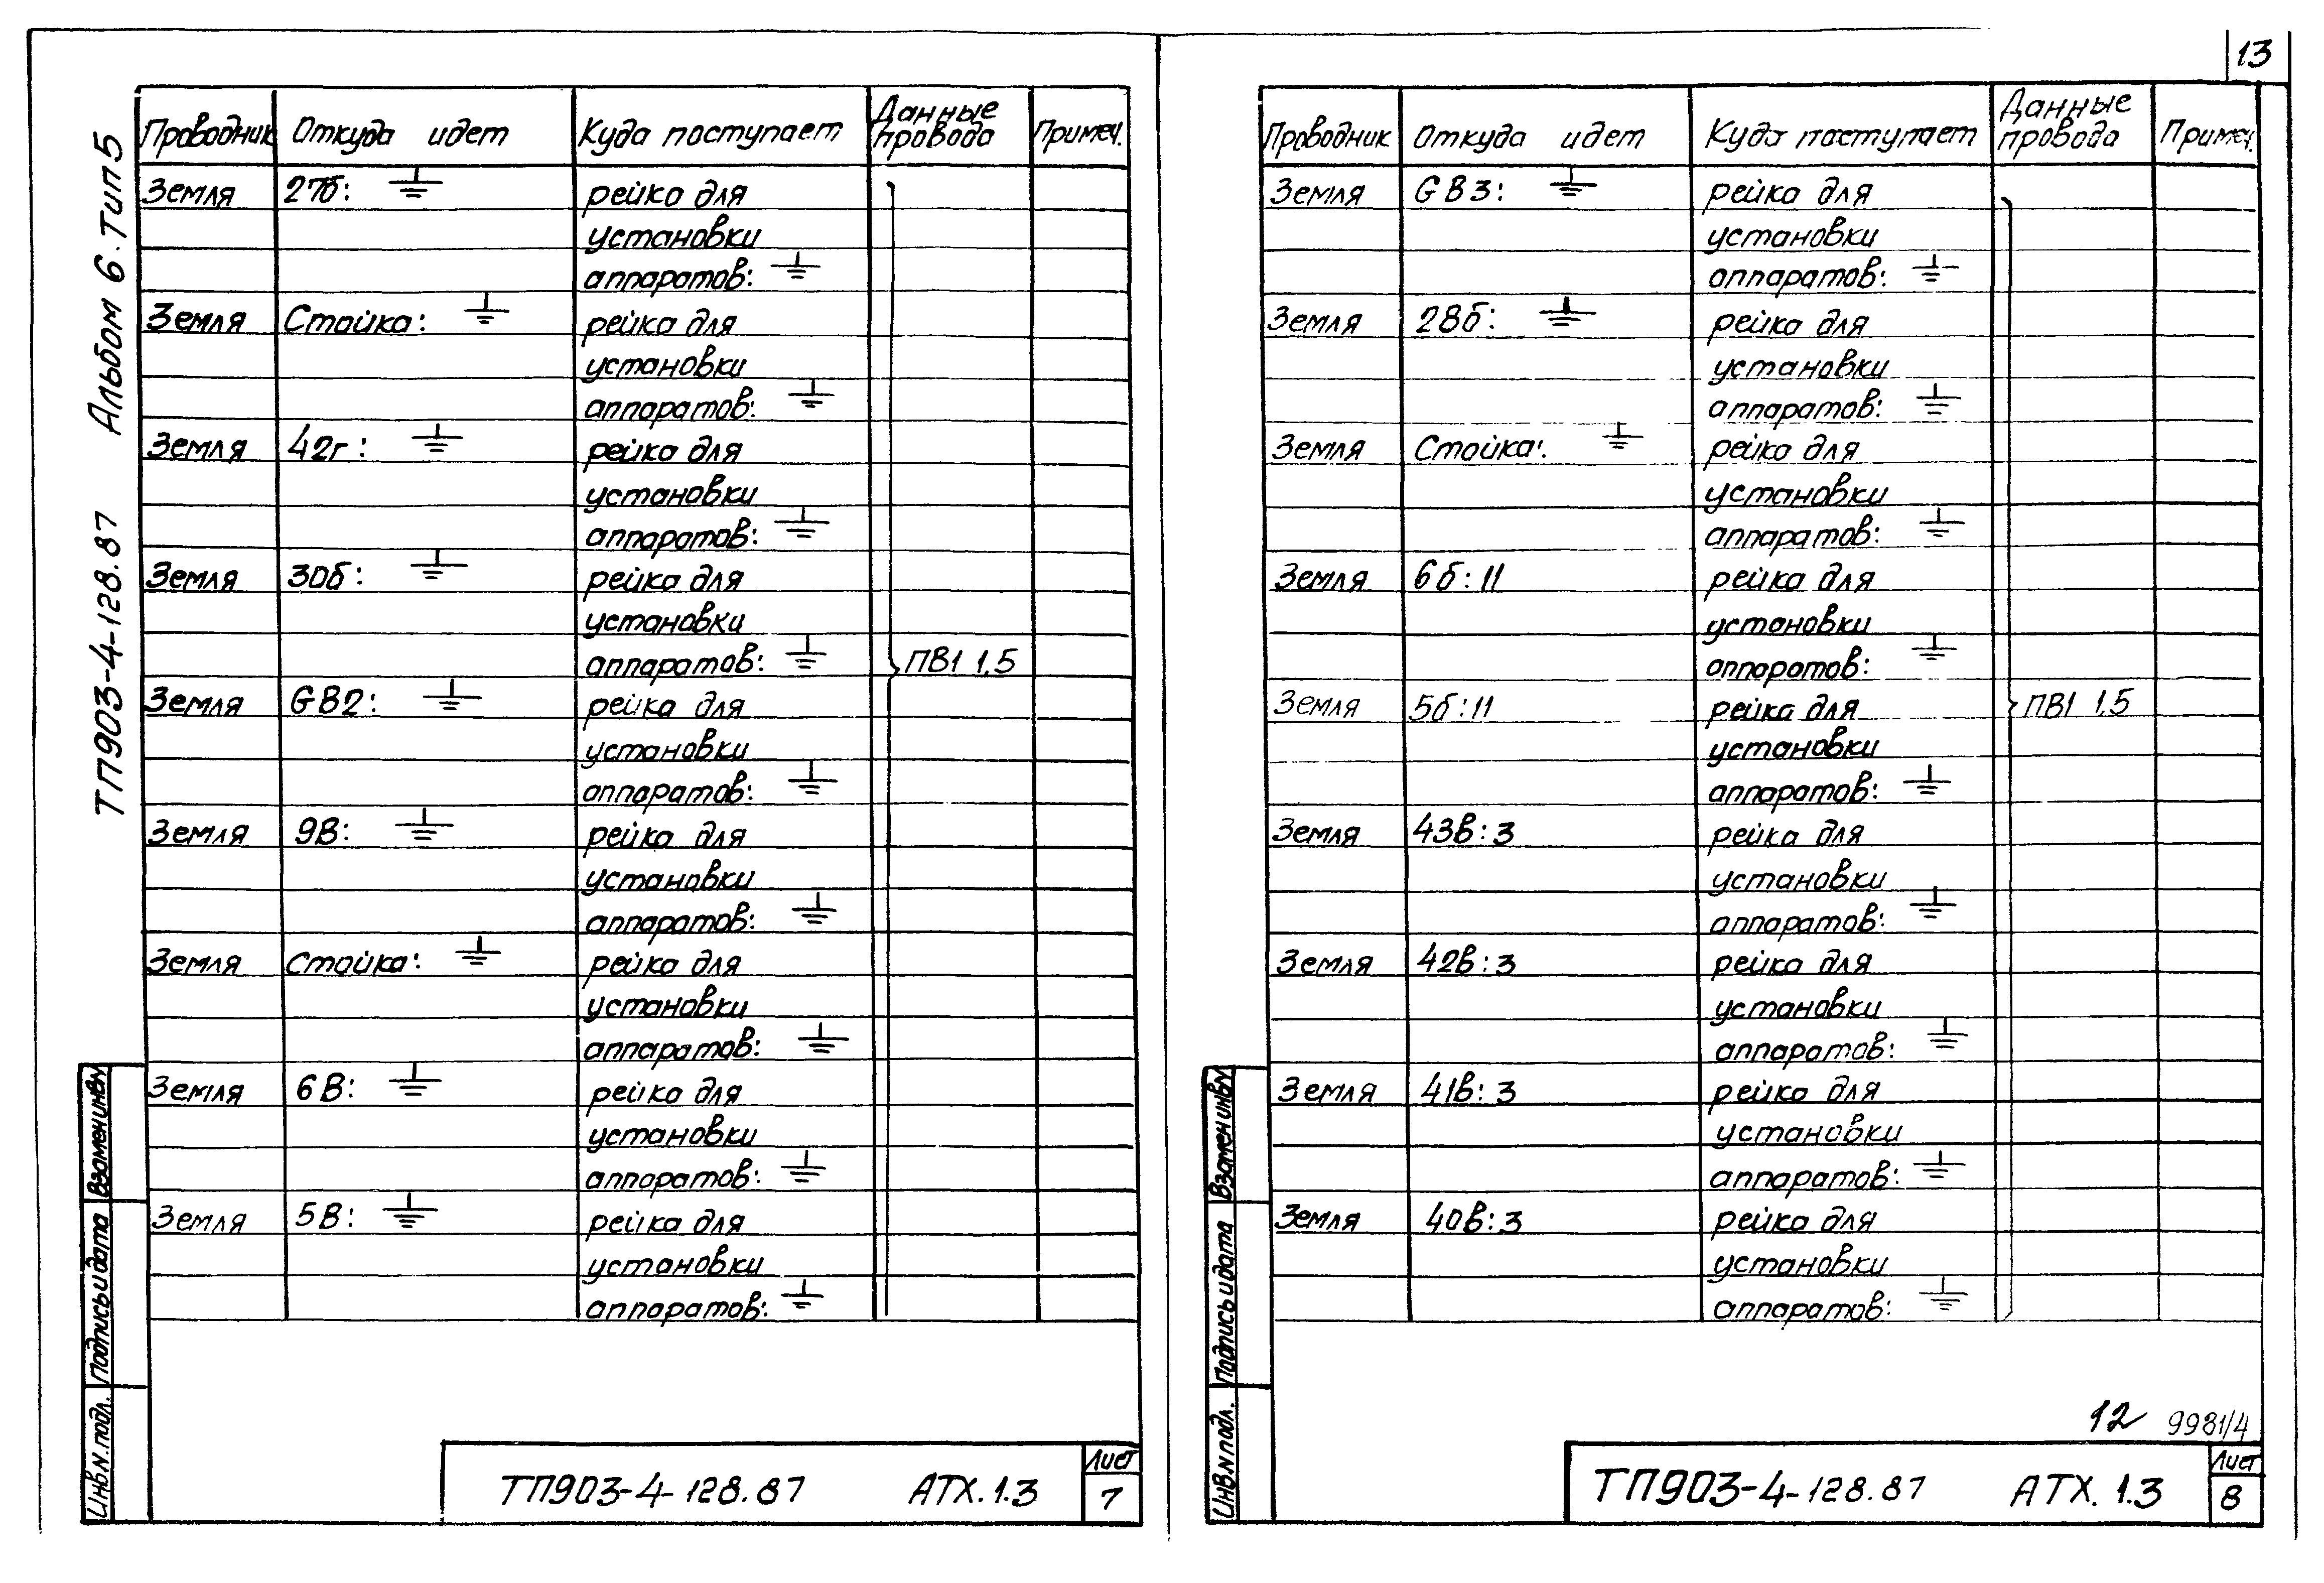 13
Альбом 6. тип 5
ТП903-4-128.87
Проводник Откуда идет Куда поступает Данные провода Примеч.
Земля 27б: ⏚ рейка для
установки
аппаратов: ⏚
Земля Стойка: ⏚ рейка для
установки
аппаратов: ⏚
Земля 42г: ⏚ рейка для
установки
аппаратов: ⏚
Земля 30б: ⏚ рейка для
установки
аппаратов: ⏚ ПВ1 1,5
Земля GB2: ⏚ рейка для
установки
аппаратов: ⏚
Земля 9В: ⏚ рейка для
установки
аппаратов: ⏚
Земля Стойка: ⏚ рейка для
установки
аппаратов: ⏚
Земля 6В: ⏚ рейка для
установки
аппаратов: ⏚
Земля 5В: ⏚ рейка для
установки
аппаратов: ⏚
Взамен инв.№
Подпись и дата
Инв.№ подл.
ТП903-4-128.87 АТХ.1.3 Лист 7
Проводник Откуда идет Куда поступает Данные провода Примеч.
Земля GB3: ⏚ рейка для
установки
аппаратов: ⏚
Земля 28б: ⏚ рейка для
установки
аппаратов: ⏚
Земля Стойка: ⏚ рейка для
установки
аппаратов: ⏚
Земля 6б:11 рейка для
установки
аппаратов: ⏚
Земля 5б:11 рейка для ПВ1 1,5
установки
аппаратов: ⏚
Земля 43в:3 рейка для
установки
аппаратов: ⏚
Земля 42в:3 рейка для
установки
аппаратов: ⏚
Земля 41в:3 рейка для
установки
аппаратов: ⏚
Земля 40в:3 рейка для
установки
аппаратов: ⏚
Взамен инв.№
Подпись и дата
Инв.№ подл.
12 9981/4
ТП903-4-128.87 АТХ.1.3 Лист 8